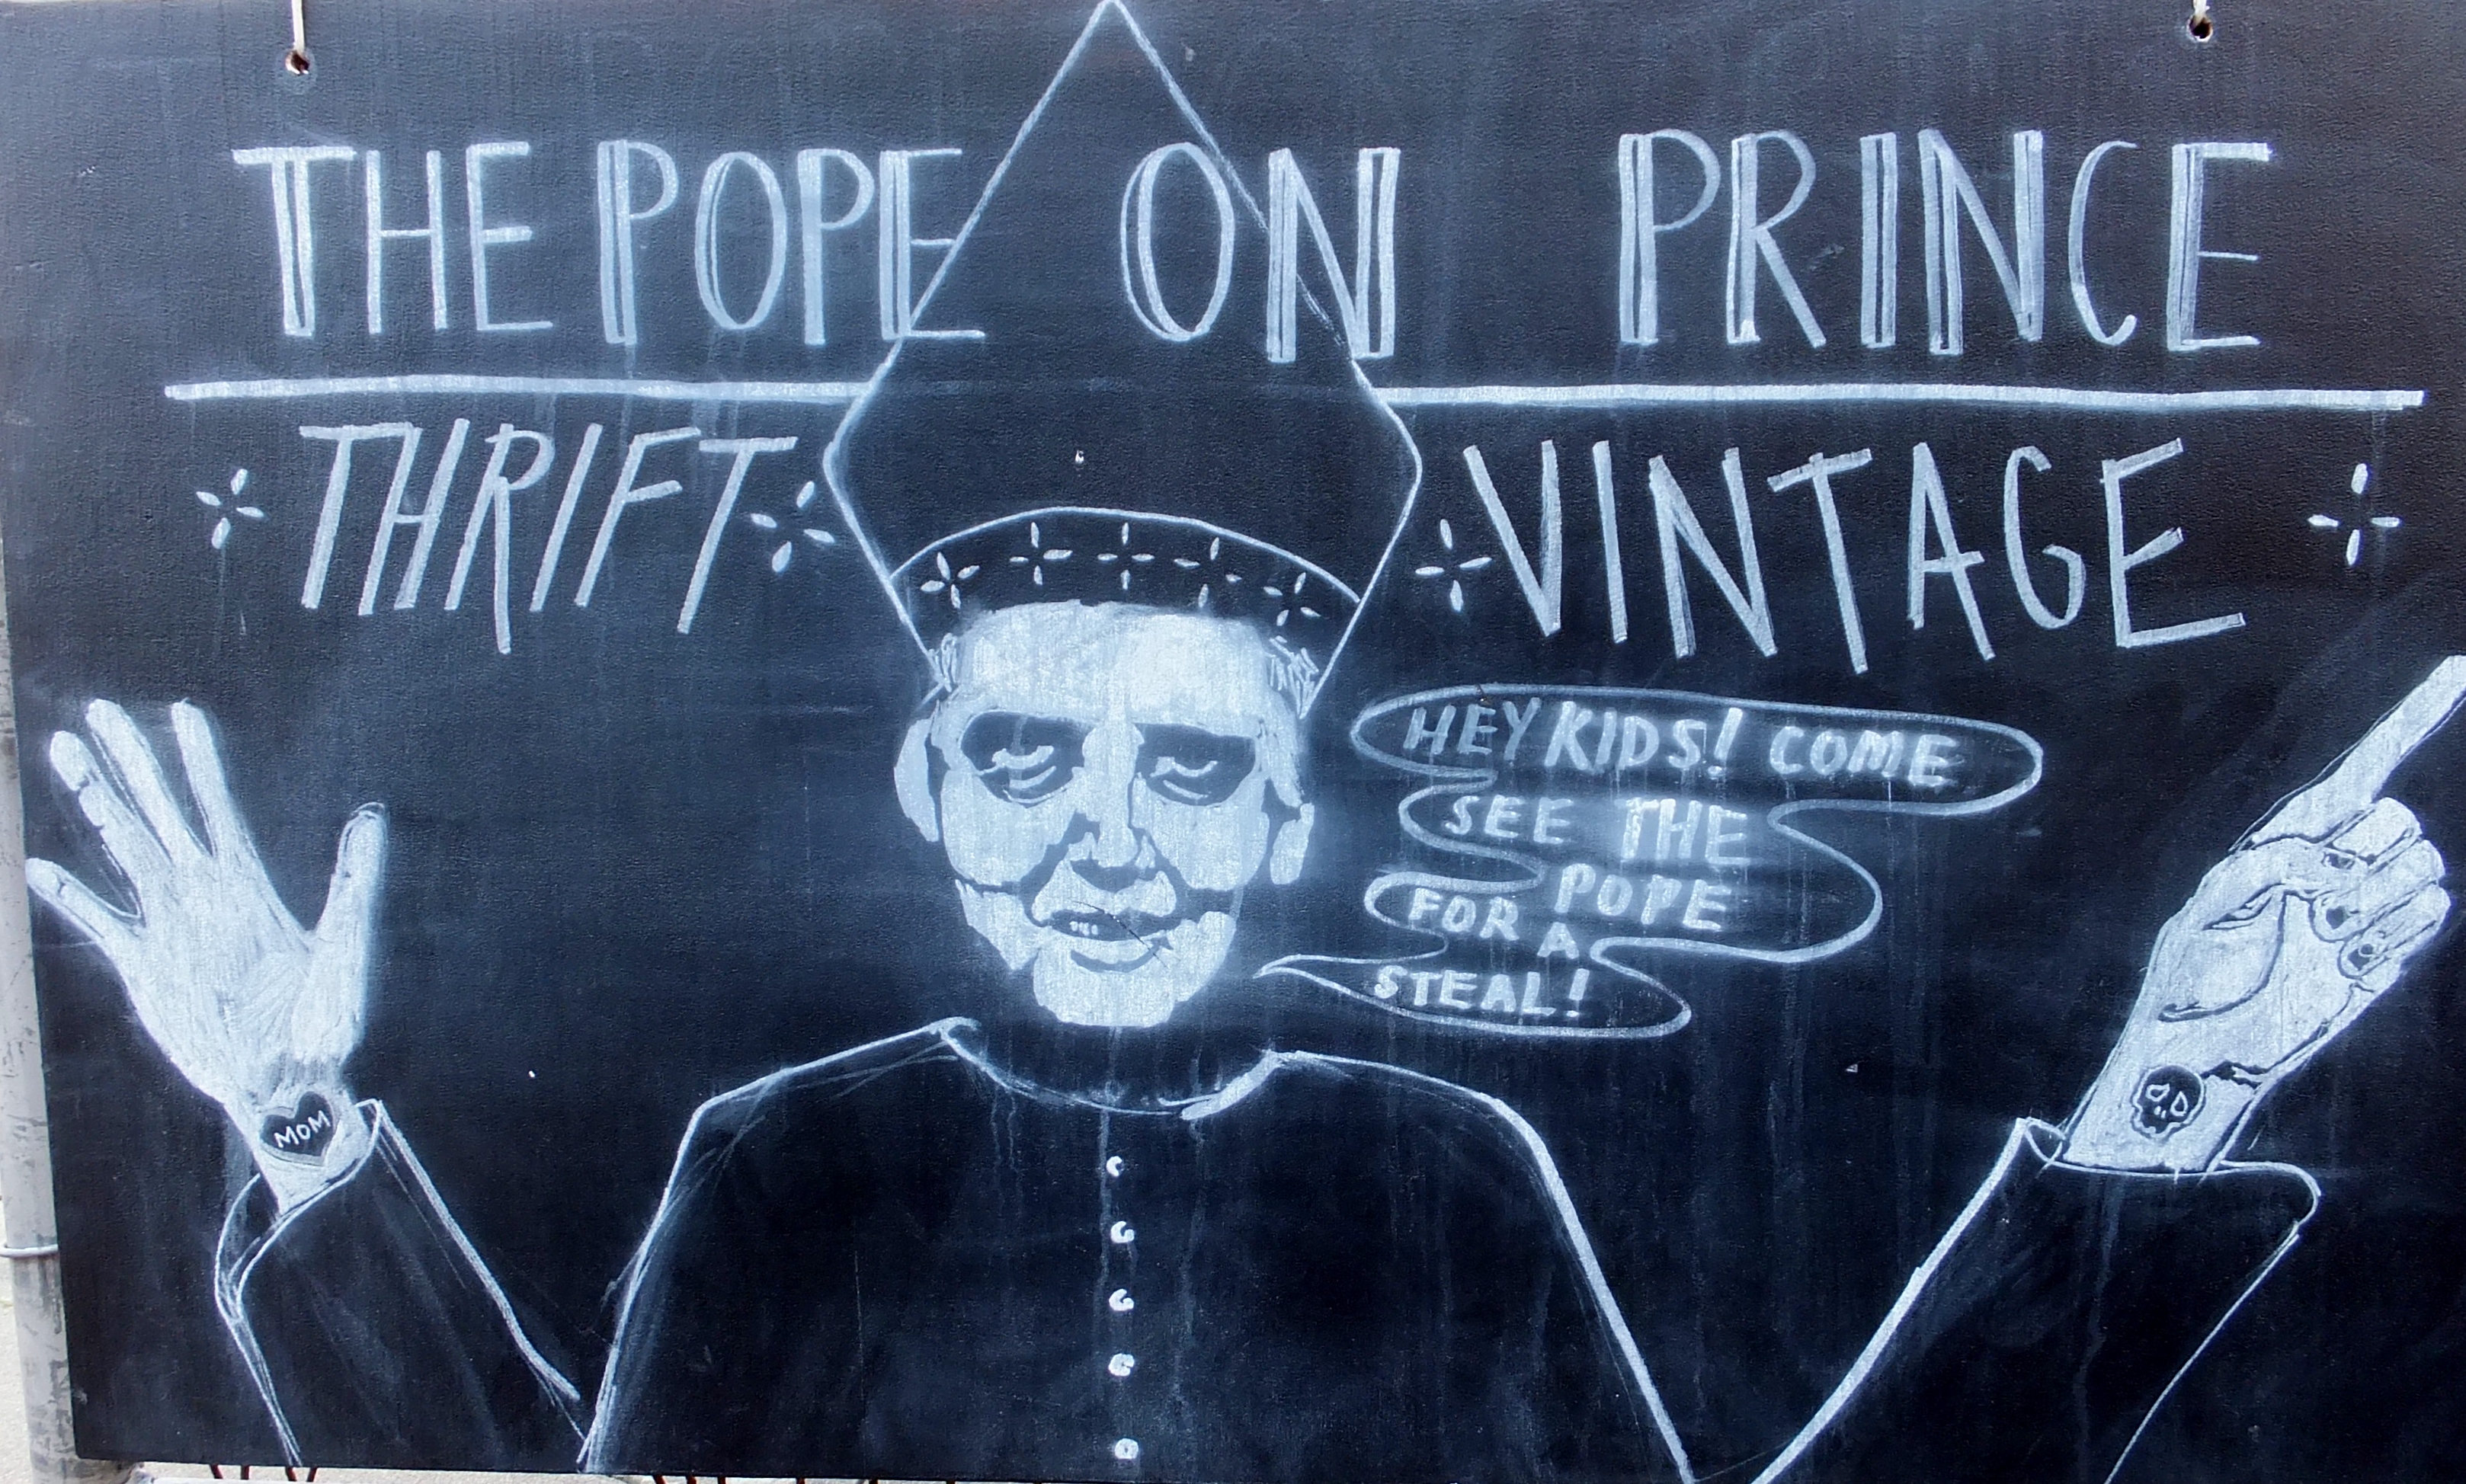 THE POPE ON PRINCE
THRIFT VINTAGE
HEY KIDS! COME
SEE THE
POPE
FOR A
STEAL!
MOM